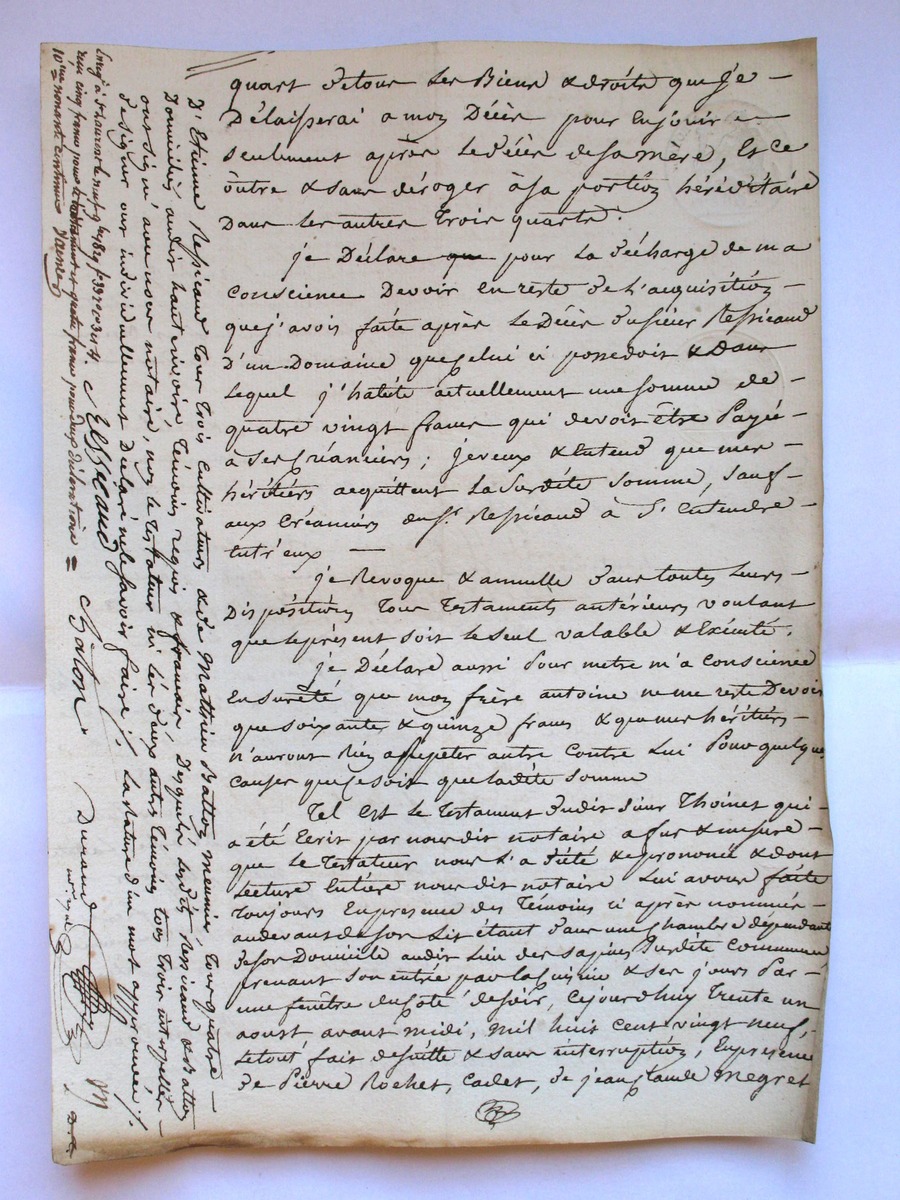 quart de tous les Biens & droits que je —
Délaisserai a mon Décès pour En jouir —
seulement après le décès de sa mère, Et ce
outre & sans déroger à sa portion héréditaire
Dans les autres trois quarts.
je Déclare que pour la décharge de ma
Conscience Devoir En reste de l'acquisition —
que j'avois faite après le Décès du sieur Ressicaud
d'un Domaine que celui ci possedoit & dans
Lequel j'habite actuellement une somme de —
quatre vingt francs qui devoit être Payée —
a ses Créanciers ; je veux & Entend que mes —
héritiers acquittent la susdite somme, sauf —
aux Créanciers du sr. Ressicaud à s'Entendre —
Entr'eux —
je Revoque & annulle dans toutes Leurs —
Dispositions tous testaments antérieurs voulant
que le présent soit le seul valable & Exécuté.
je Déclare aussi Pour metre m'a Conscience
En sureté que mon frère antoine ne me reste Devoir
que soixante & quinze francs & que mes héritiers —
n'auront Rien a Repeter autre Contre Lui Pour quelque
causes que ce soit que ladite somme
Tel Est le Testament dudit sieur Thoinet qui —
a été Ecrit par nous dit notaire a fur & mesure —
que le Testateur nous l'a dicté & prononcé & dont
Lecture Entière nous dit notaire Lui avons faite
Toujours En presence des Témoins ci après nommés —
au devant de son Lit étant dans une chambre dépendant
de son Domicile audit Lieu des sapins susdite Commune
prenant son entrée par la Cuisine & ses jours Par —
une fenêtre du Coté de soir, Cejourdhuy trente un
aoust avant midi, mil huit cent vingt neuf, —
le tout fait de suitte & sans interruption, En presence
de Pierre Rochet, Cadet, de jean Claude megret
D'Etienne Ressicaud tous trois Cultivateurs & de Matthieu Batton meunier, tous quatre —
Domiciliés audit Témoins requis & français, Desquels lesdits Ressicaud & Batton
ont signé avec nous notaire, non le Testateur ni les deux autres Témoins tous trois interpellés —
de signer ont individuellement Déclaré ne le savoir faire ./. la rature d'un mot approuvée ./.
E Ressicaud Baton Durand
Enrg. à le neuf
cinq francs pour le testament et quatre francs pour deux déclarations =
10me nonant centimes